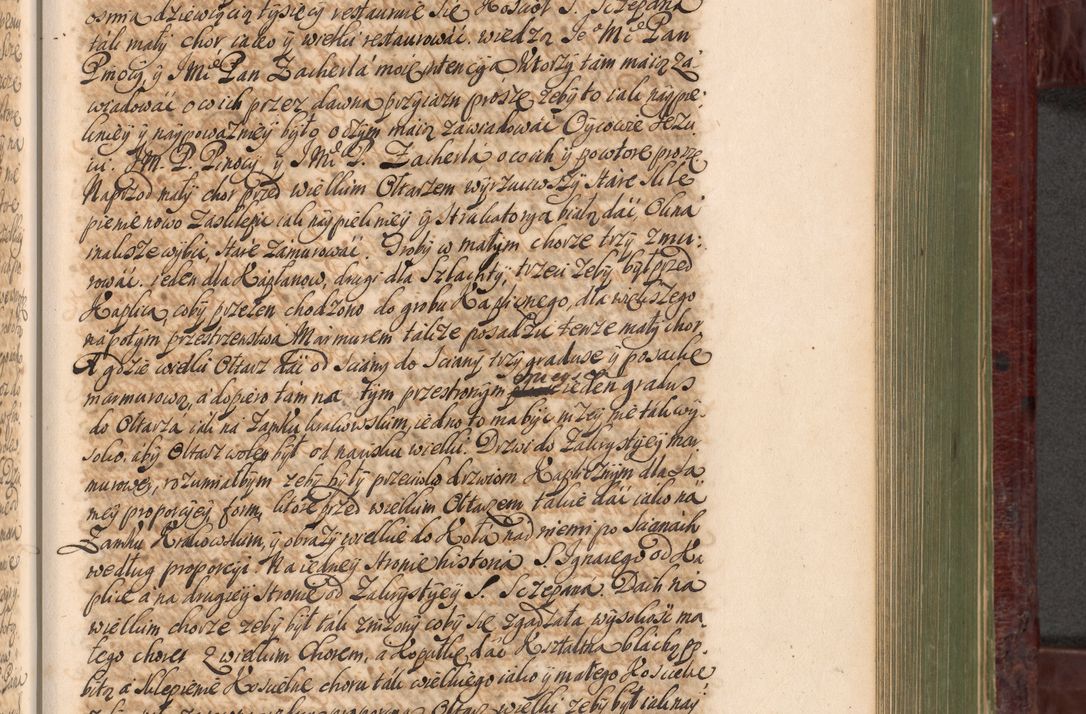 osmią dziewięcią tysięcy restauruie się Kościoł S. Sczepana
tak mały chor iako y wielki restaurować. wiedzą Je° Mć Pan
Pinocy, y JMć Pan Zacherla moię intencyą Ktorzy tam maią za
wiadować o co ich przez dawną przyiazn proszę żeby to iak naypię:
kniey y naypoważniey było o czym maią zawiadować Oycowie Jezu
ici. JM. P. Pinocy y JMć P. Zacherla o co ich y powtore proszę
Naprzod mały chor przed wielkim Ołtarzem wyrzuciwszy stare skle
pienie nowo zasklepić iak naypiękniey y Strukatoryą białą dać, Okna
inaksze wybić, stare zamurować. Groby w małym chorze trzy zmu:
rować. ieden dla Kapłanow, drugi dla Szlachty, trzeci żeby był przed
Kaplicą, coby przezen chodzono do grobu Kaplicznego, dla większego
napotym przestrzenstwa Marmurem także posadzić tenże mały chor.
A gdzie wielki Ołtarz dać od sciany do sciany trzy gradusy y posackę
marmurową, a dopiero tam na tym przestronym ieden gradus
do Ołtarza iak na Zamku krakowskim, iedno to ma być niżey nie tak wy:
soko, aby Ołtarz wolen był od nacisku wielki. Drzwi do Zakrystyey mar
murowe, rozumiałbym żeby były przeciwko drzwiom Kaplicznym dla sa
mey proporcyey form, ktore przed wielkim Ołtarzem takie dać iako na
Zamku Krakowskim, y obrazy wielkie do Koła nad niemi po scianach
według proporcyi. Na iedney stronie historia S. Ignacego od Ka
plice a na drugiey stronie od Zakrystyey S. Sczepana. Dach na
wielkim chorze żeby był tak zniżony coby się zgadzała wysokość ma
łego choru z wielkim Chorem, a kopułkę dać Kształtną blachą po
bitą a sklepienie Kościelne choru tak wielkiego iako y małego Kościelie
Ołtarz wielki żeby był iak nay